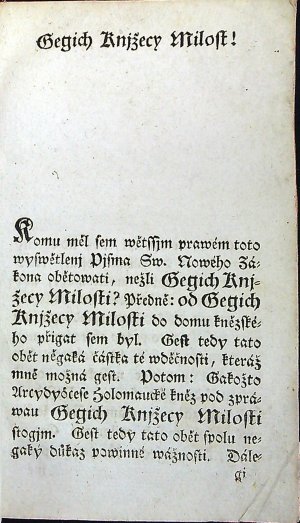 Gegich Knjžecy Milost!
Komu měl sem wětssjm prawém toto
wyswětlenj Pjsma Sw. Nowého Zá-
kona obětowati, nežli Gegich Knj-
žecy Milosti? Předně: od Gegich
Knjžecy Milosti do domu kněžské-
ho přigat sem byl. Gest tedy tato
obět něgaká částka té wděčnosti, kteráž
mně možná gest. Potom: Gakožto
Arcydyöcese Holomaucké kněz pod zprá-
wau Gegich Knjžecy Milosti
stogjm. Gest tedy tato obět spolu ne-
gaký důkaz powinné wážnosti. Dále-
gi